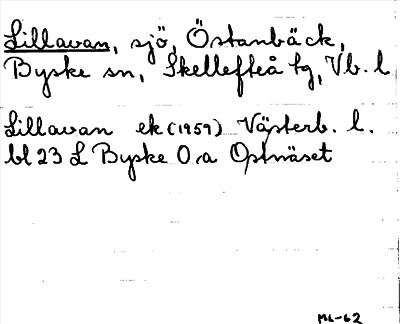 Lillavan, sjö, Östanbäck,
Byske sn, Skellefteå tg, Vb. l
Lillavan ek (1959) Västerb. l.
bl 23 L Byske O. a Ostnäset
ML-62